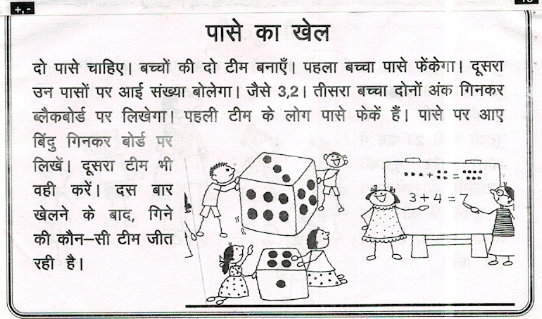 +,-
पासे का खेल
दो पासे चाहिए। बच्चों की दो टीम बनाएँ। पहला बच्चा पासे फेंकेगा। दूसरा
उन पासों पर आई संख्या बोलेगा। जैसे 3,2। तीसरा बच्चा दोनों अंक गिनकर
ब्लैकबोर्ड पर लिखेगा। पहली टीम के लोग पासे फेकें हैं। पासे पर आए
बिंदु गिनकर बोर्ड पर
लिखें। दूसरा टीम भी
वही करें। दस बार
खेलने के बाद, गिने
की कौन–सी टीम जीत
रही है।
+ =
3+4=7